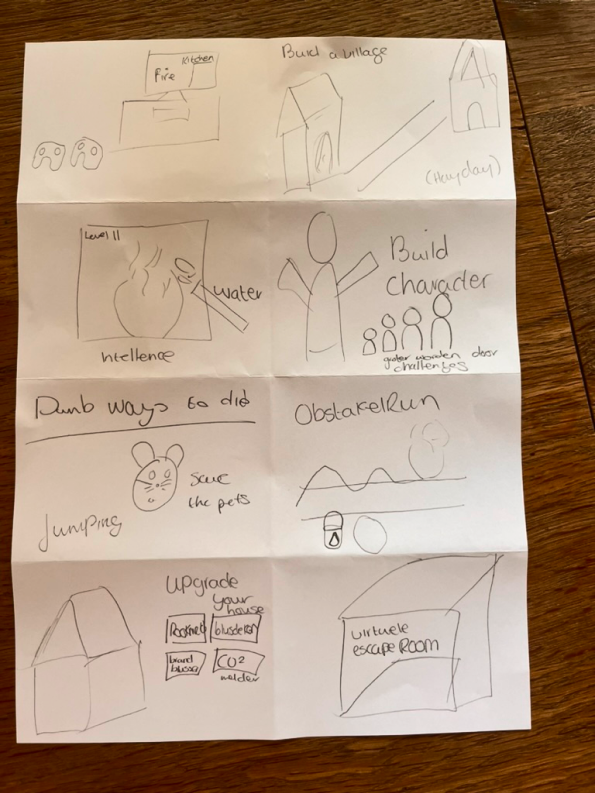 Kitchen
Fire
Build a village
(Hayday)
Level 11
water
ntellence
Build
Character
groter worden door
challenges
Dumb ways to die
Save
the pets
Jumping
ObstakelRun
Upgrade
your
house
blusdeken
brand
blusser
CO2
melder
virtuele
escape Room